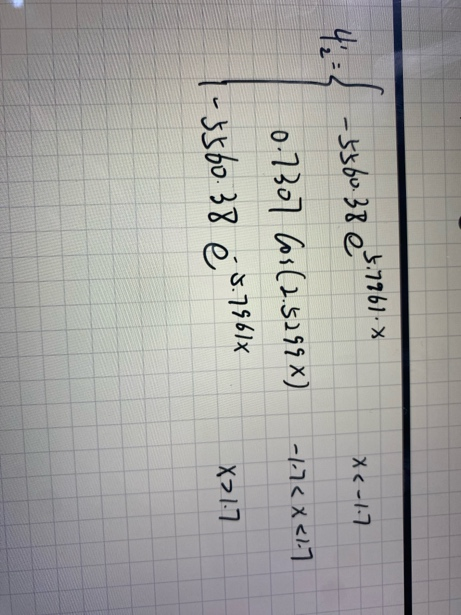 ψ₂ = { -5560.38 e^{5.7961·x} x < -1.7
0.7307 cos(2.5299x) -1.7 < x < 1.7
-5560.38 e^{-5.7961x} x > 1.7